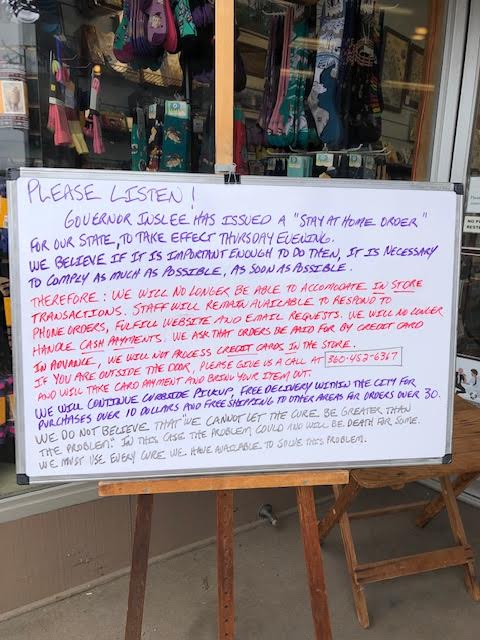 PLEASE LISTEN!
GOVERNOR INSLEE HAS ISSUED A "STAY AT HOME ORDER"
FOR OUR STATE, TO TAKE EFFECT THURSDAY EVENING.
WE BELIEVE IF IT IS IMPORTANT ENOUGH TO DO THEN, IT IS NECESSARY
TO COMPLY AS MUCH AS POSSIBLE, AS SOON AS POSSIBLE.
THEREFORE: WE WILL NO LONGER BE ABLE TO ACCOMODATE IN STORE
TRANSACTIONS. STAFF WILL REMAIN AVAILABLE TO RESPOND TO
PHONE ORDERS, FULFILL WEBSITE AND EMAIL REQUESTS. WE WILL NO LONGER
HANDLE CASH PAYMENTS. WE ASK THAT ORDERS BE PAID FOR BY CREDIT CARD
IN ADVANCE, WE WILL NOT PROCESS CREDIT CARDS IN THE STORE.
IF YOU ARE OUTSIDE THE DOOR, PLEASE GIVE US A CALL AT 360-452-6367
AND WILL TAKE CARD PAYMENT AND BRING YOUR ITEM OUT.
WE WILL CONTINUE CURBSIDE PICKUP, FREE DELIVERY WITHIN THE CITY FOR
PURCHASES OVER 10 DOLLARS AND FREE SHIPPING TO OTHER AREAS FOR ORDERS OVER 30.
WE DO NOT BELIEVE THAT "WE CANNOT LET THE CURE BE GREATER THAN
THE PROBLEM." IN THIS CASE THE PROBLEM COULD AND WILL BE DEATH FOR SOME.
WE MUST USE EVERY CURE WE HAVE AVAILABLE TO SOLVE THIS PROBLEM.